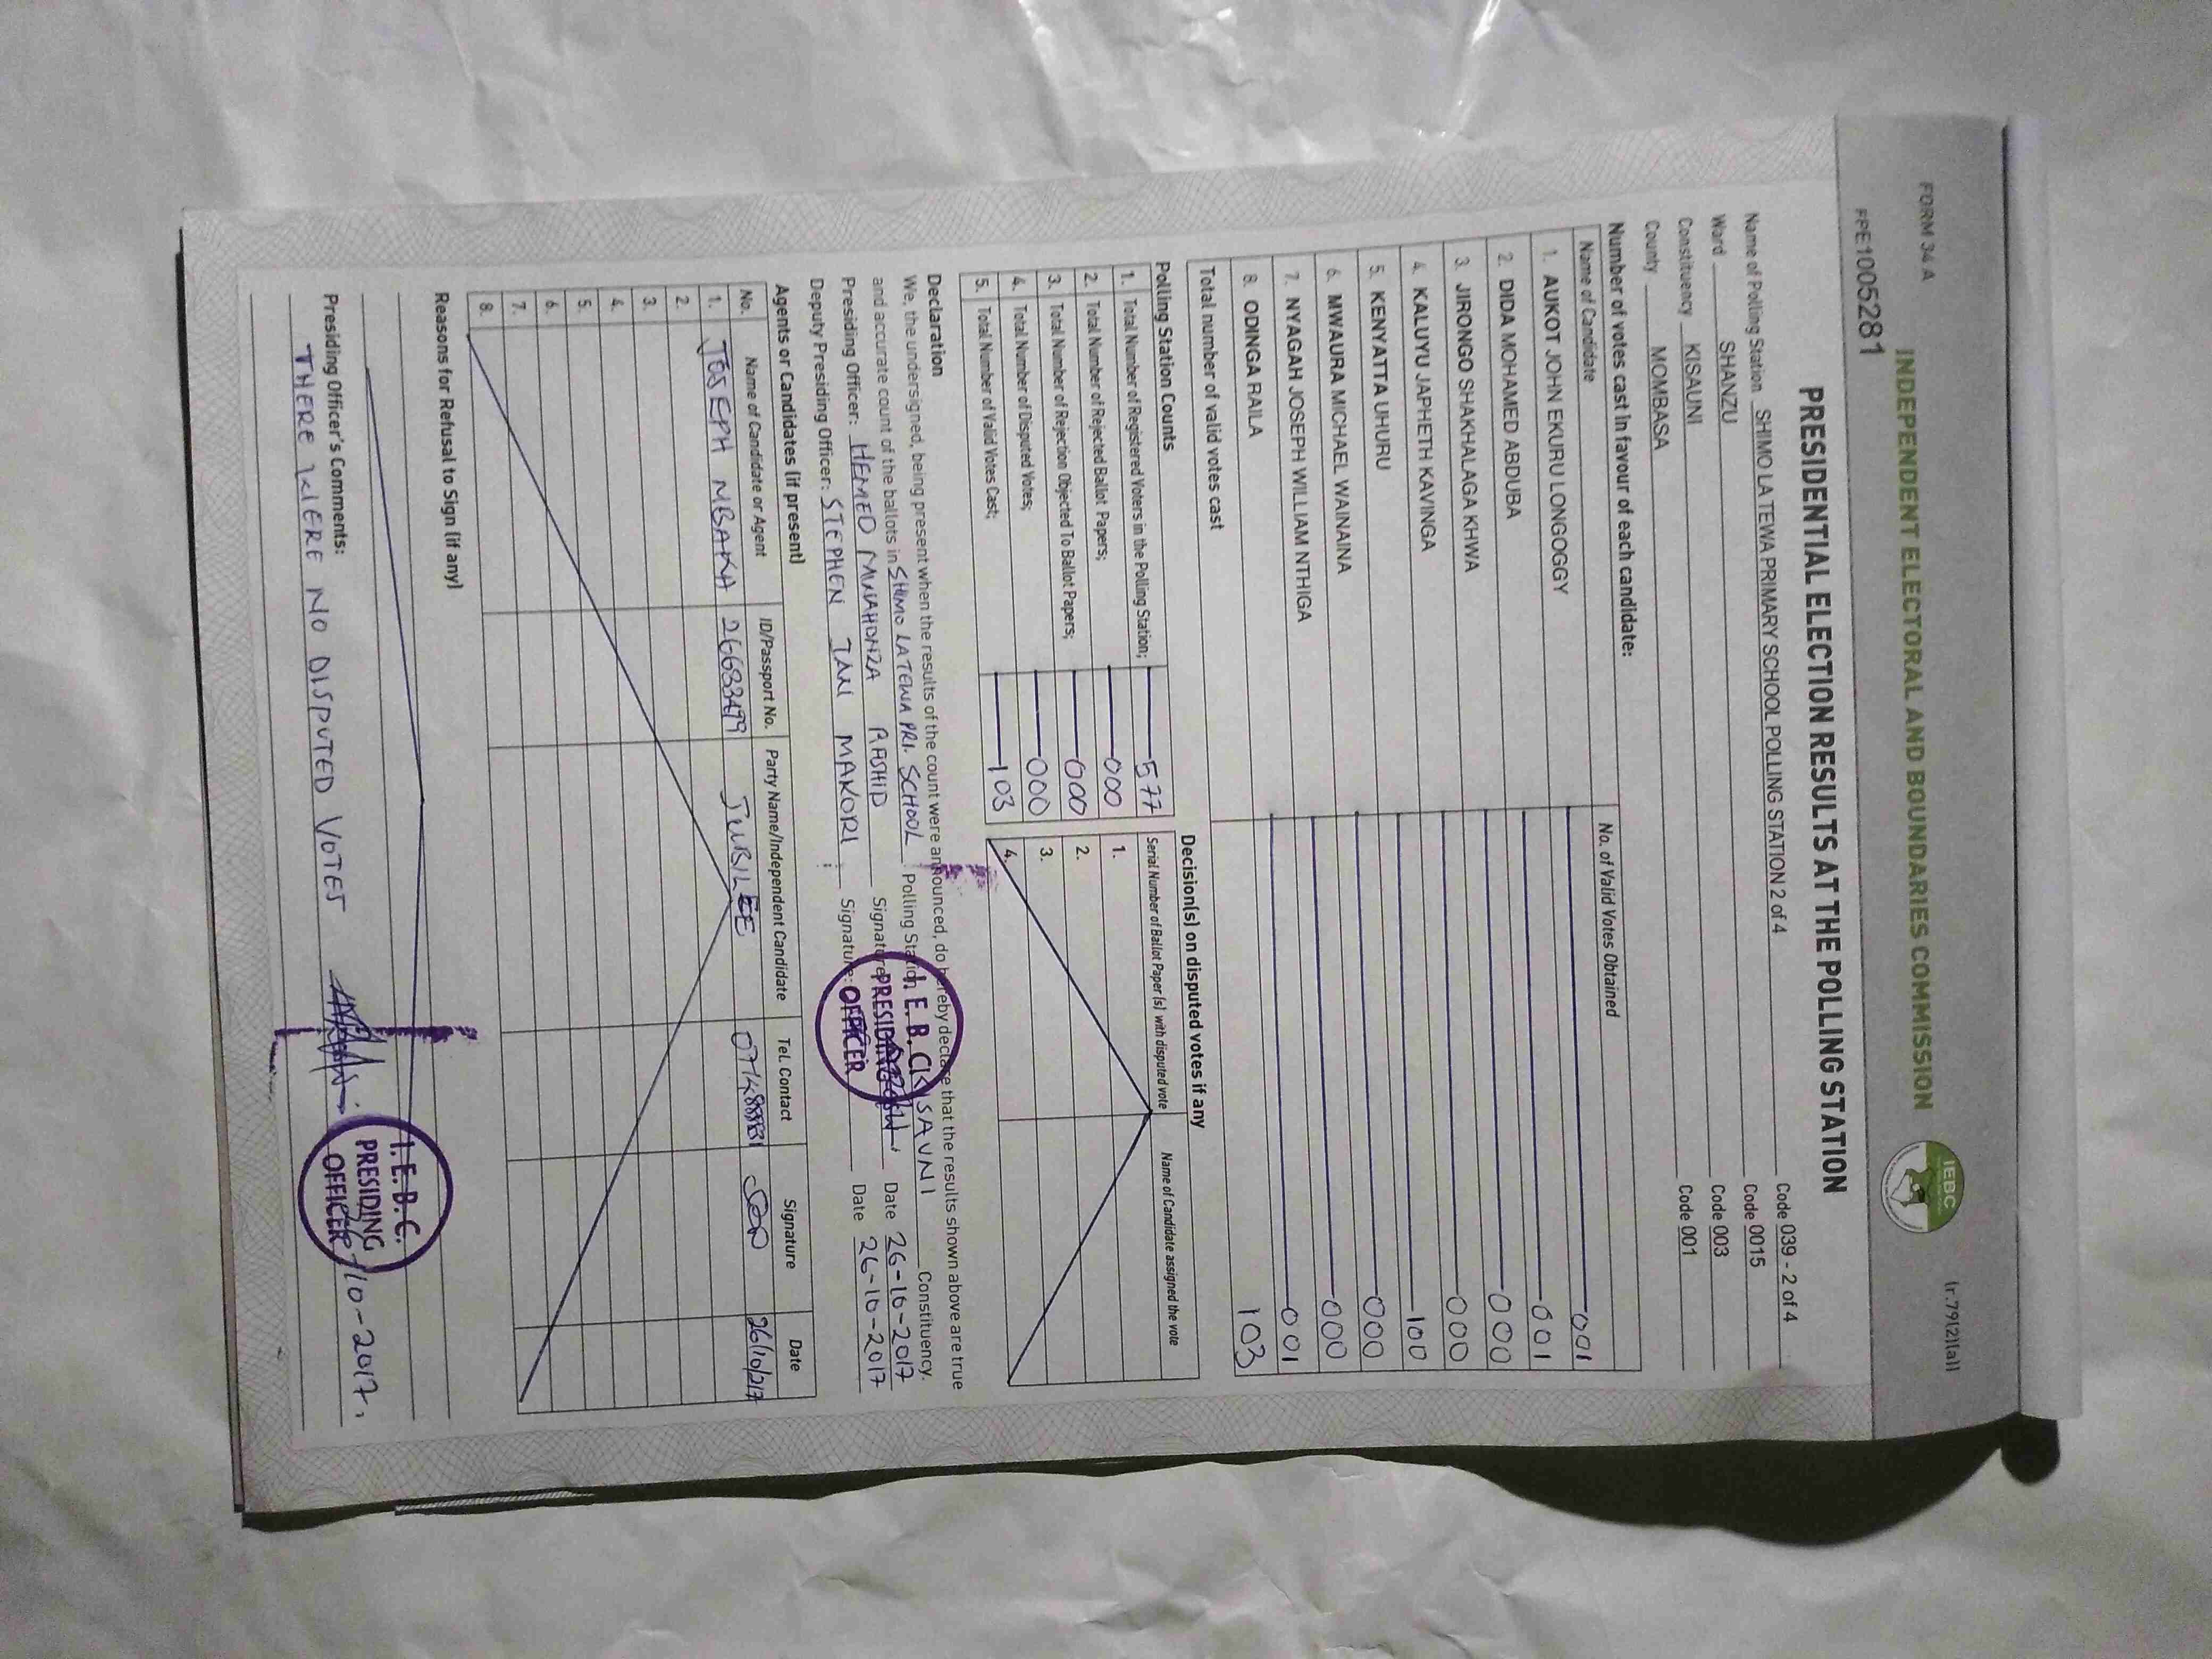 FORM 34 A
(r.79(2)(a))
INDEPENDENT ELECTORAL AND BOUNDARIES COMMISSION
IEBC
PPE1005281
PRESIDENTIAL ELECTION RESULTS AT THE POLLING STATION
Name of Polling Station SHIMO LA TEWA PRIMARY SCHOOL POLLING STATION 2 of 4 Code 039 - 2 of 4
Ward SHANZU Code 0015
Constituency KISAUNI Code 003
County MOMBASA Code 001
Number of votes cast in favour of each candidate:
Name of Candidate No. of Valid Votes Obtained
1. AUKOT JOHN EKURU LONGOGGY 001
2. DIDA MOHAMED ABDUBA 001
3. JIRONGO SHAKHALAGA KHWA 000
4. KALUYU JAPHETH KAVINGA 000
5. KENYATTA UHURU 100
6. MWAURA MICHAEL WAINAINA 000
7. NYAGAH JOSEPH WILLIAM NTHIGA 000
8. ODINGA RAILA 001
Total number of valid votes cast 103
Polling Station Counts
1. Total Number of Registered Voters in the Polling Station; 577
2. Total Number of Rejected Ballot Papers; 000
3. Total Number of Rejection Objected To Ballot Papers; 000
4. Total Number of Disputed Votes; 000
5. Total Number of Valid Votes Cast; 103
Decision(s) on disputed votes if any
Serial Number of Ballot Paper (s) with disputed vote Name of Candidate assigned the vote
1.
2.
3.
4.
Declaration
We, the undersigned, being present when the results of the count were announced, do hereby declare that the results shown above are true
and accurate count of the ballots in SHIMO LATEWA PRI. SCHOOL Polling Station KISAUNI Constituency.
Presiding Officer: HEMED MWAHONZA RASHID Signature Date 26-10-2017
Deputy Presiding Officer: STEPHEN IAN MAKORI Signature: Date 26-10-2017
I.E.B.C.
PRESIDING
OFFICER
Agents or Candidates (if present)
No. Name of Candidate or Agent ID/Passport No. Party Name/Independent Candidate Tel. Contact Signature Date
1. JOSEPH MBAKA JUBILEE
2.
3.
4.
5.
6.
7.
8.
Reasons for Refusal to Sign (if any)
Presiding Officer's Comments:
THERE WERE NO DISPUTED VOTES
I.E.B.C.
PRESIDING
OFFICER